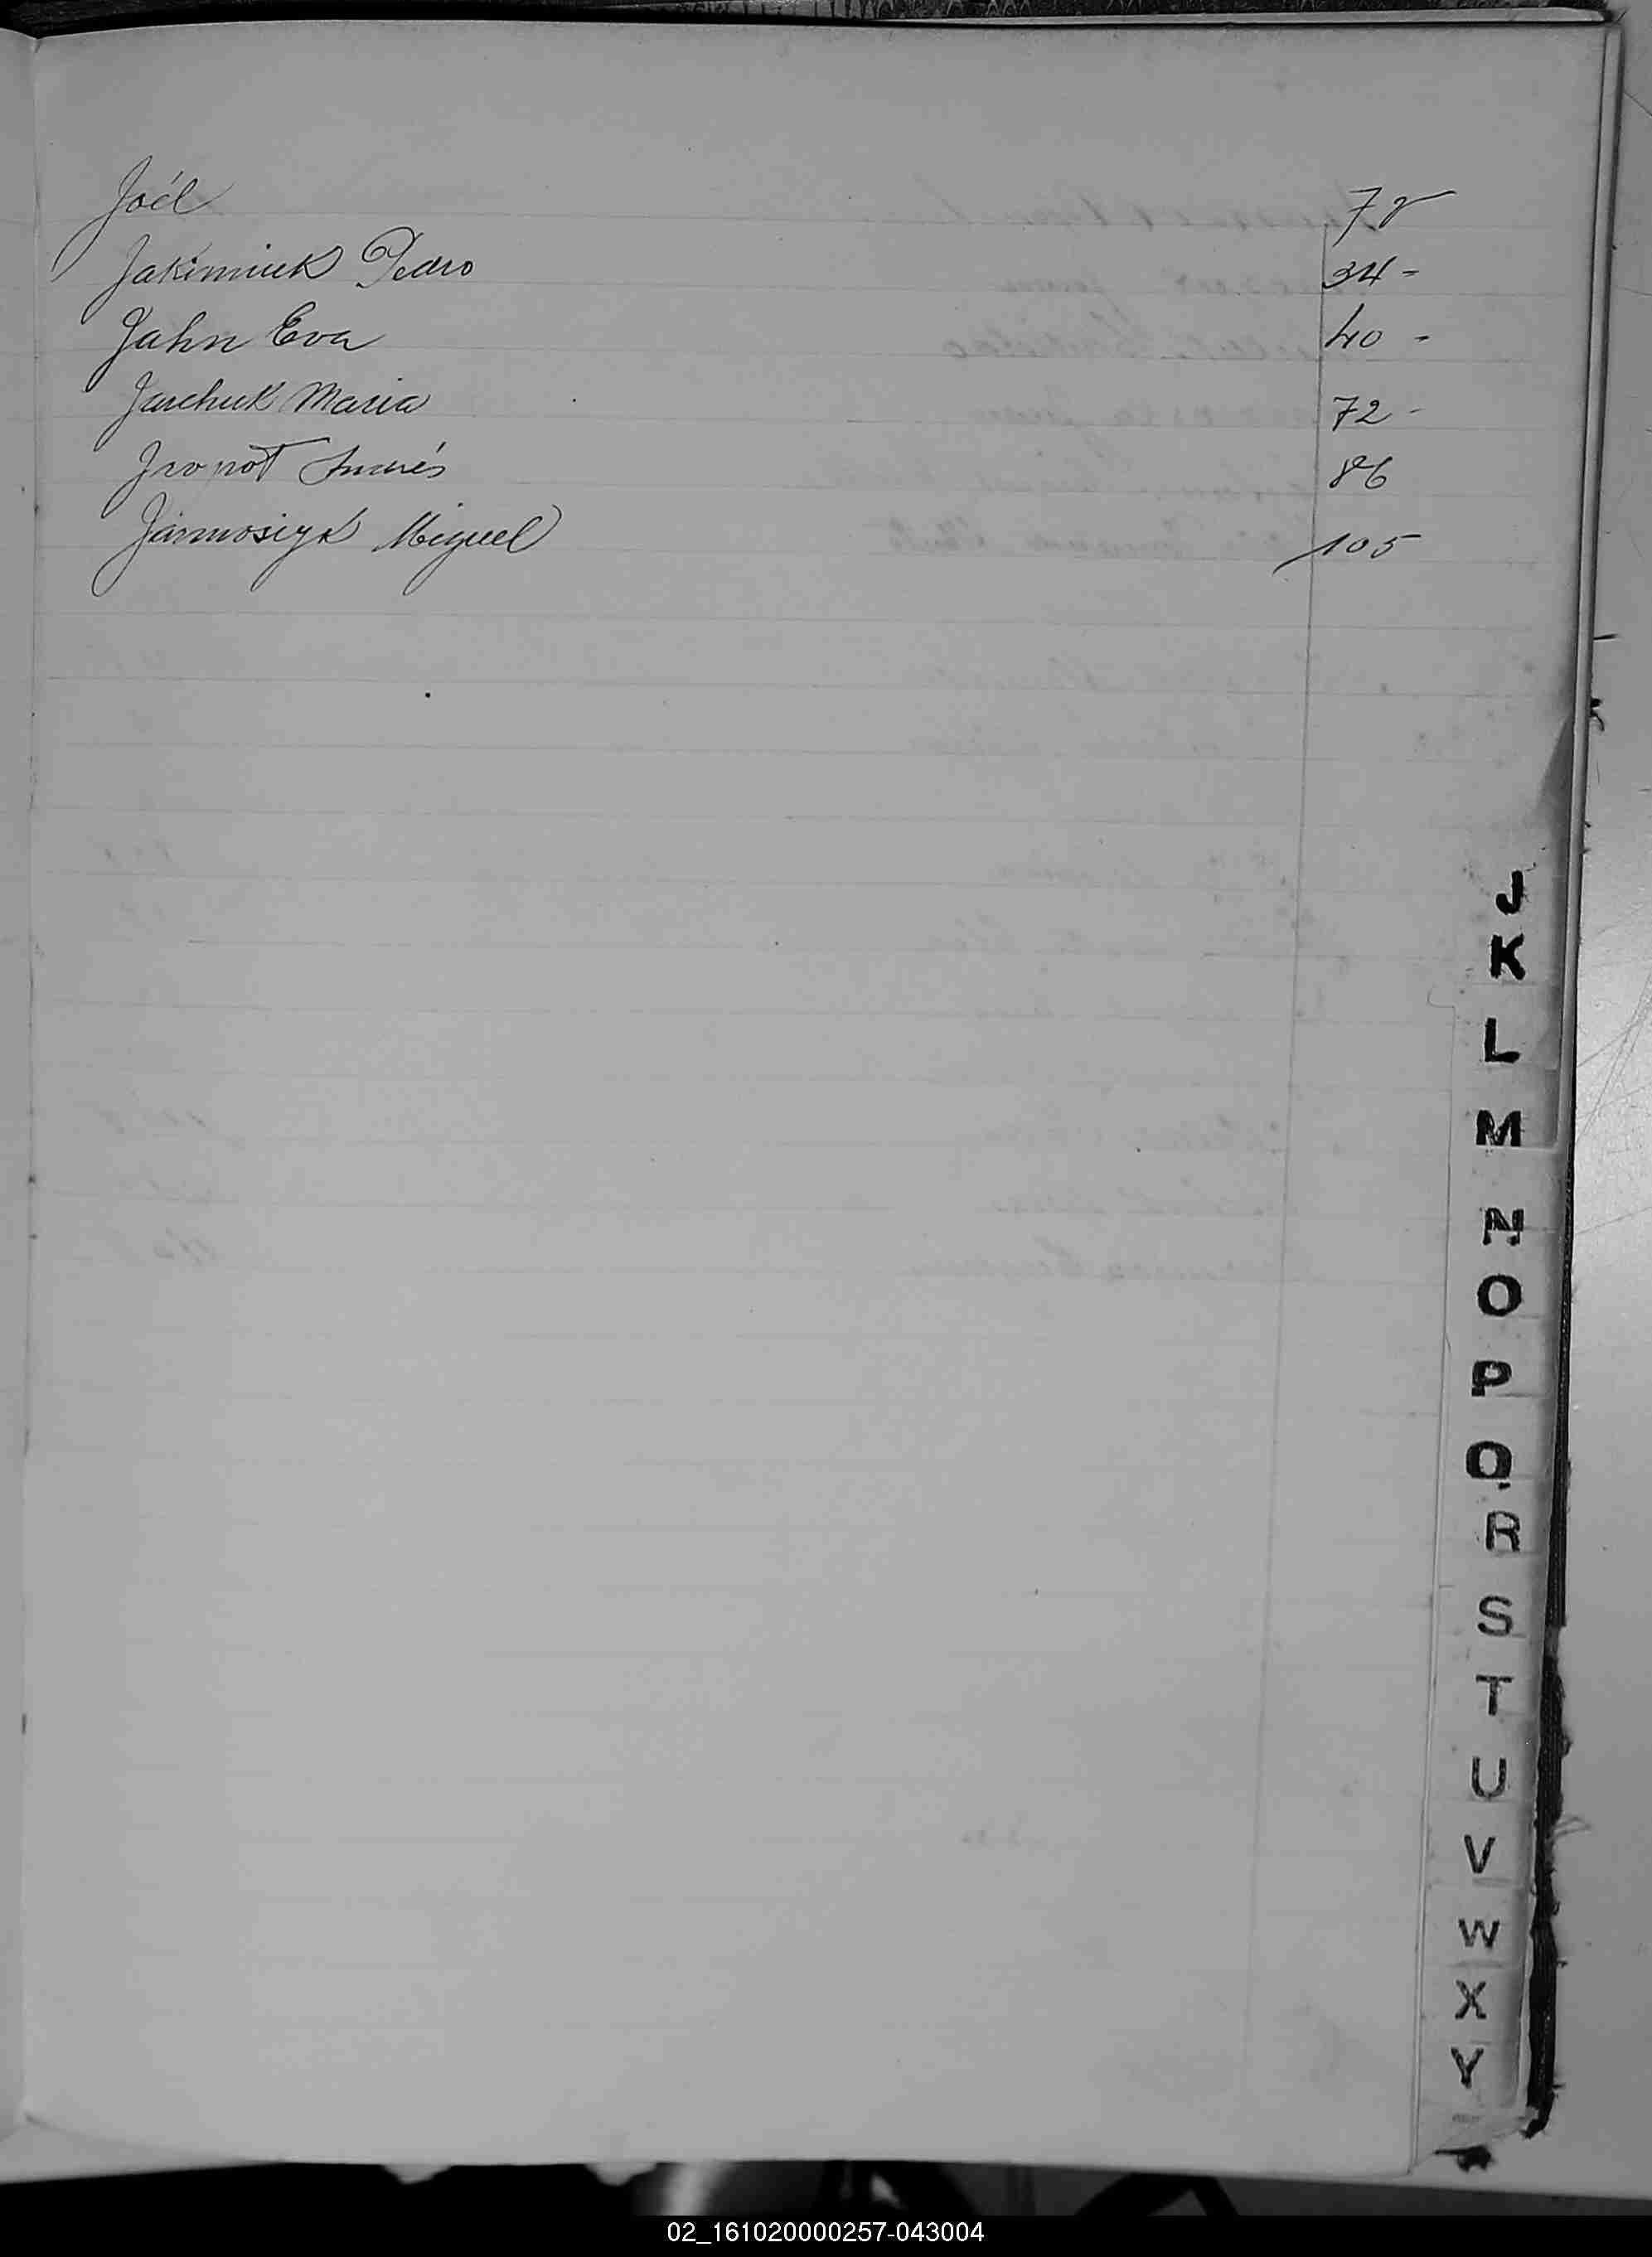 Joél 78
Jakimiuk Pedro 34 -
Jahn Eva 40 -
Jarchuk Maria 72 -
86
Jarmosiyk Miguel 105
J
K
L
M
N
O
P
Q
R
S
T
U
V
W
X
Y
02_161020000257-043004